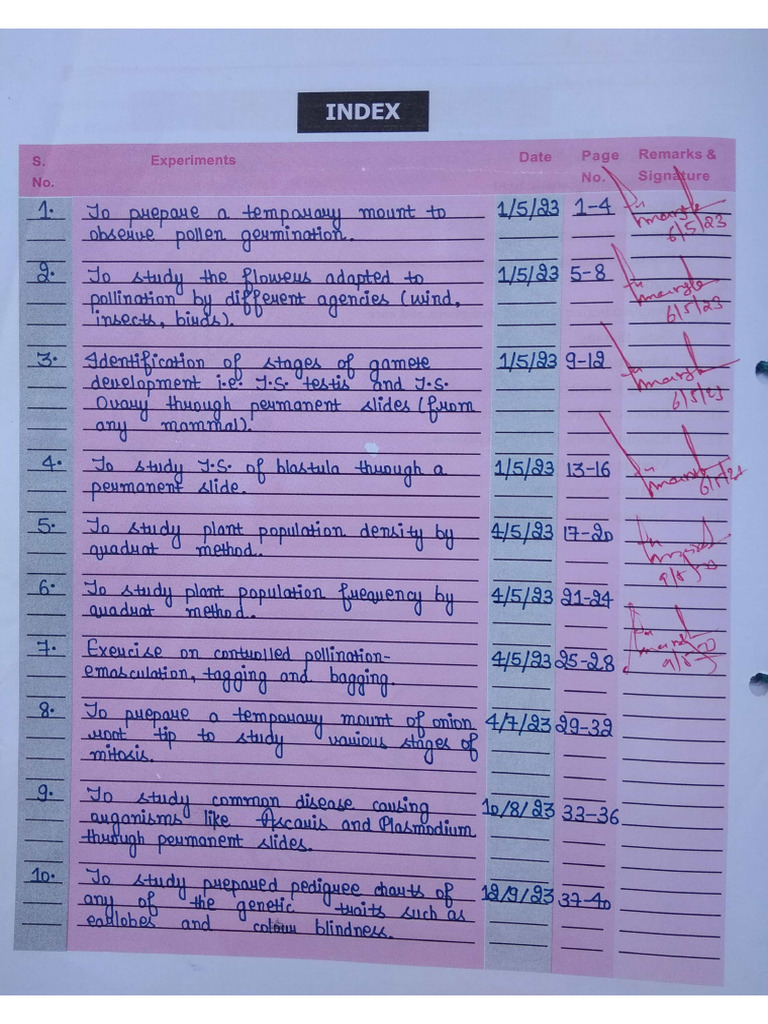 INDEX
S. No. Experiments Date Page No. Remarks & Signature
1. To prepare a temporary mount to 1/5/23 1-4
observe pollen germination. 6/5/23
2. To study the flowers adapted to 1/5/23 5-8
pollination by different agencies (wind,
insects, birds). 6/5/23
3. Identification of stages of gamete 1/5/23 9-12
development i.e. T.S. testis and T.S.
Ovary through permanent slides (from 6/5/23
any mammal).
4. To study T.S. of blastula through a 1/5/23 13-16
permanent slide.
5. To study plant population density by 4/5/23 17-20
quadrat method.
6. To study plant population frequency by 4/5/23 21-24
quadrat method.
7. Exercise on controlled pollination- 4/5/23 25-28
emasculation, tagging and bagging.
8. To prepare a temporary mount of onion 4/7/23 29-32
root tip to study various stages of
mitosis.
9. To study common disease causing 10/8/23 33-36
organisms like Ascaris and Plasmodium
through permanent slides.
10. To study prepared pedigree charts of 12/9/23 37-40
any of the genetic traits such as
earlobes and colour blindness.